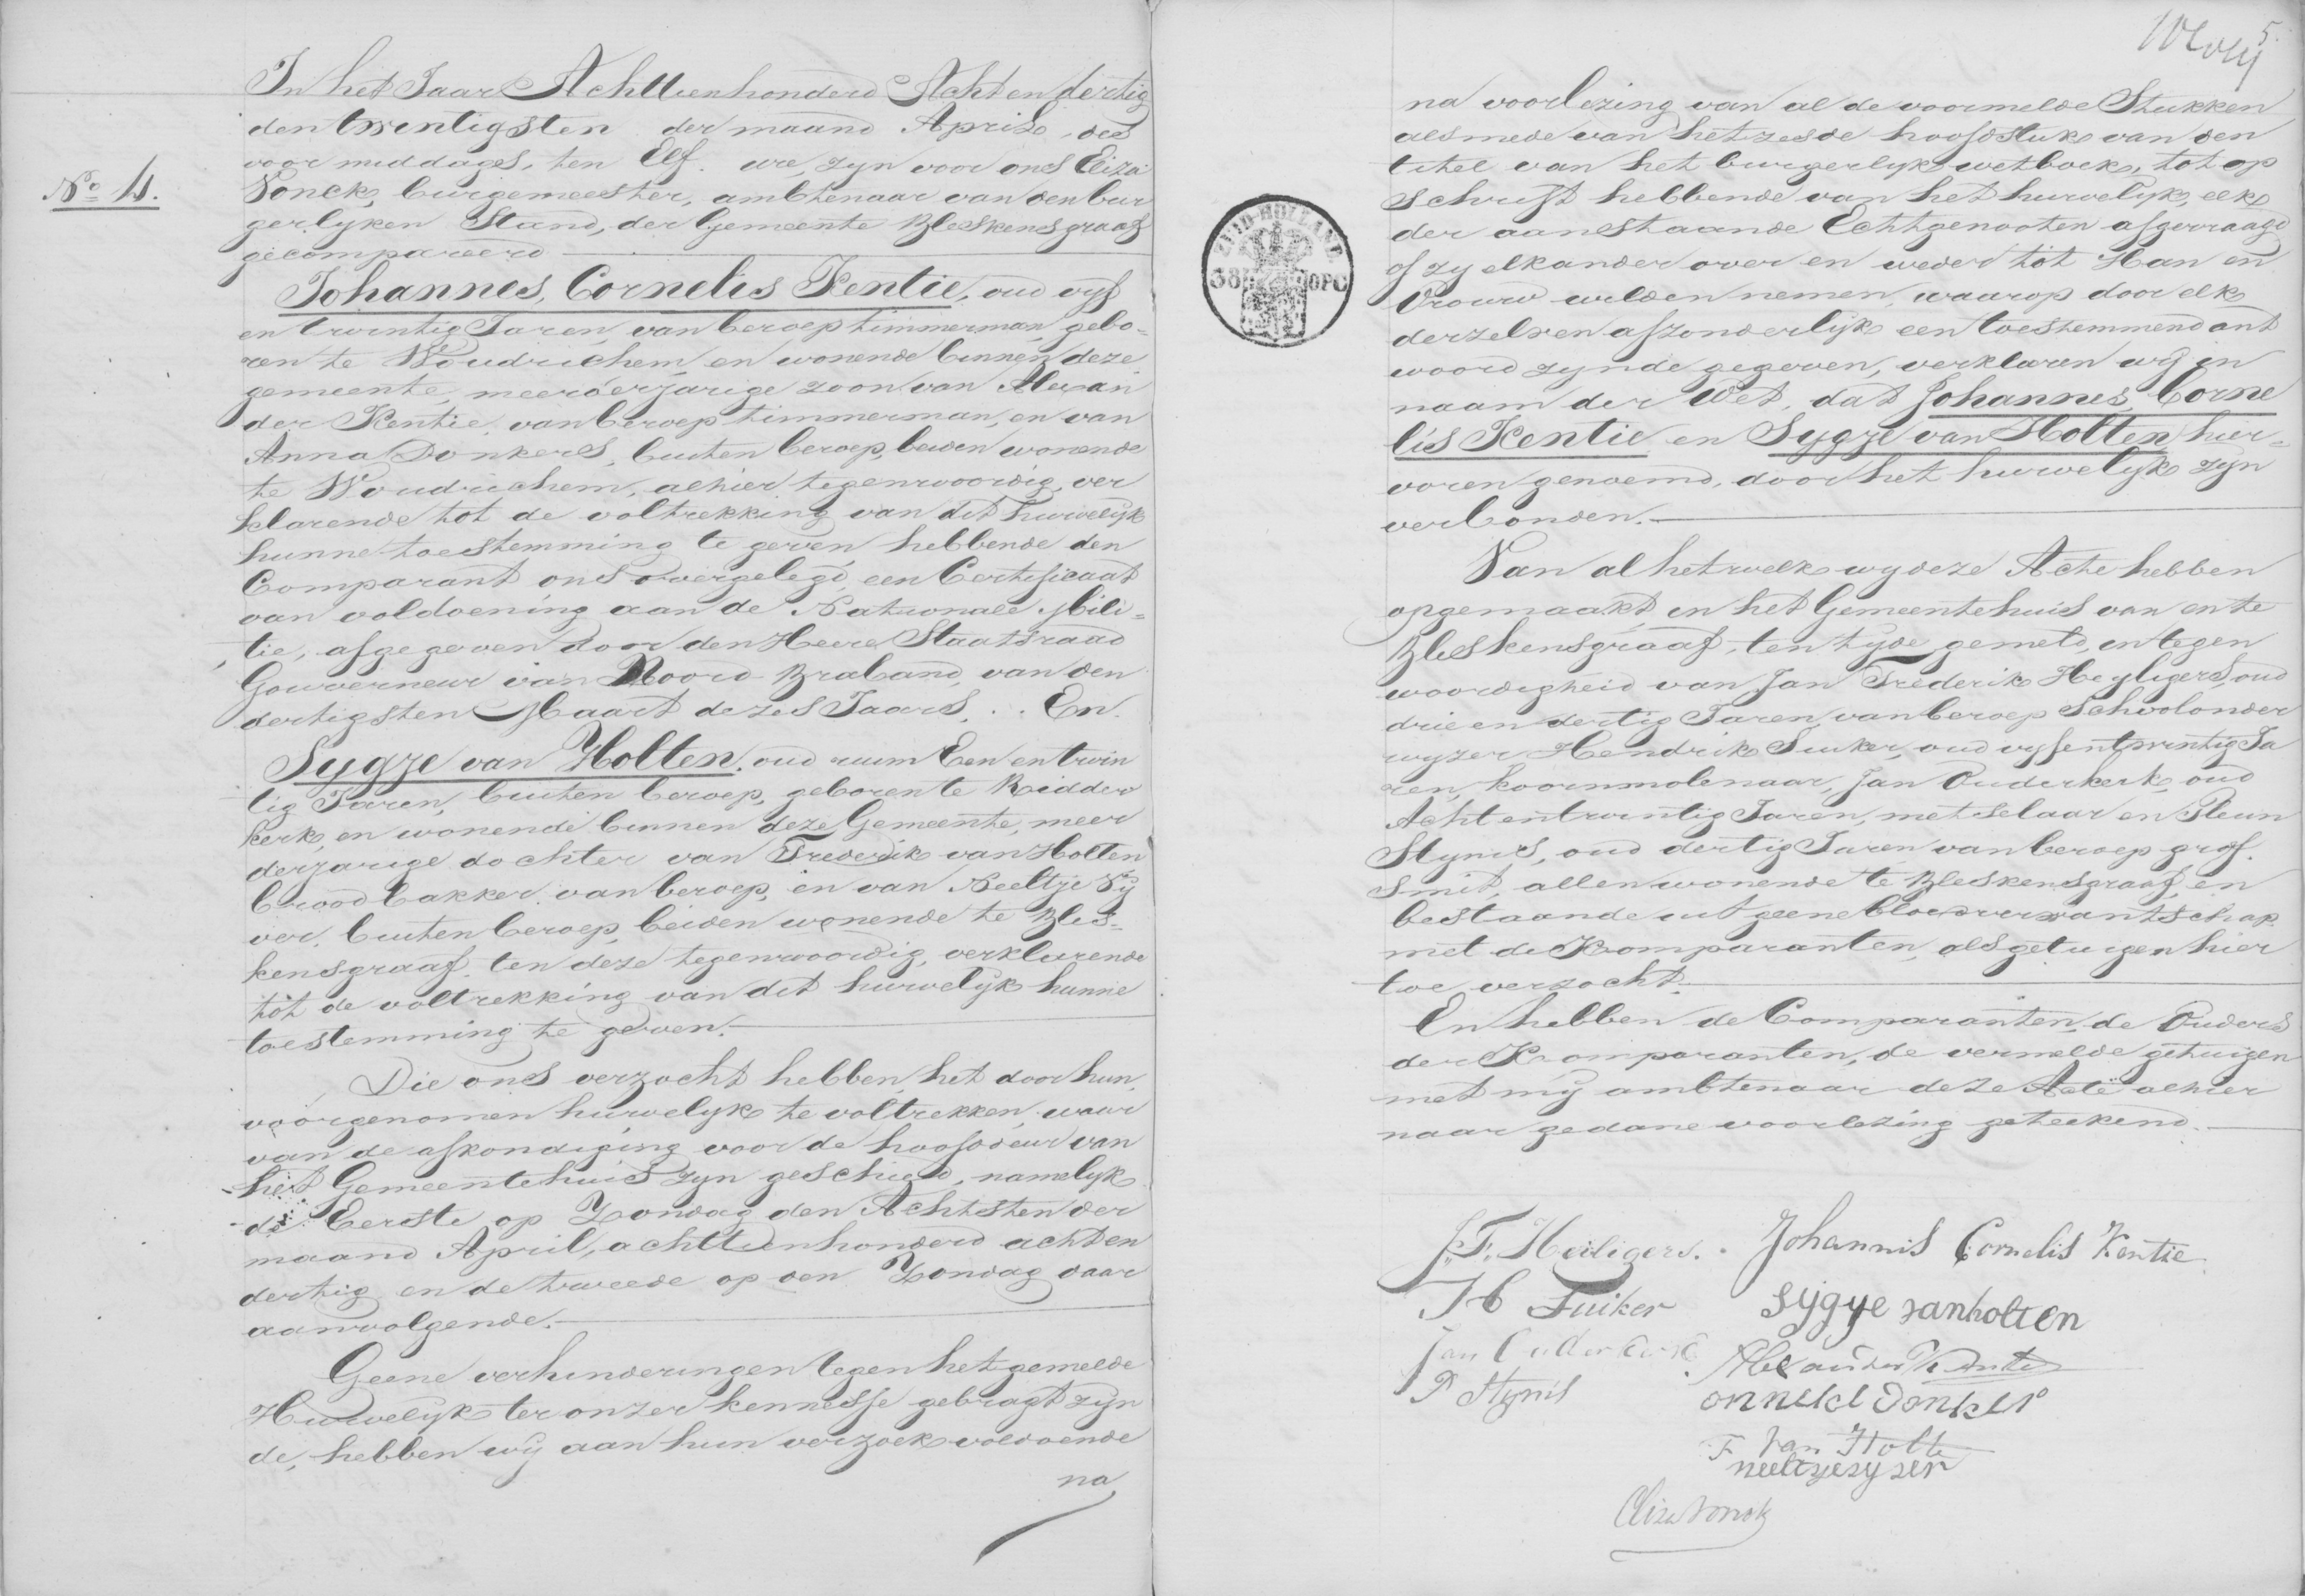 In het Jaar Achttienhonderd Acht en dertig
den twintigsten der maand April, des
voormiddages, ten Elf ure, zyn voor ons Eliza
Vonck, burgemeester, ambtenaar van den bur
gerlyken Stand, der Gemeente Bleskensgraaf
gecompareerd
No 4.
Johannes, Cornelis Kentie, oud vyf
en twintig Jaren, van beroep timmerman, gebo=
ren te Woudrichem, en wonende binnen deze
gemeente, meerderjarige zoon van Alexan
der Kentie, van beroep timmerman, en van
Anna Donkers, buiten beroep, beiden wonende
te Woudrichem, alhier tegenwoordig, ver
klarende tot de voltrekking van dit huwelyk
hunne toestemming te geven, hebbende den
Comparant ons overgelegd, een Certificaat
van voldoening aan de Nationale Mili=
tie, afgegeven door den Heere Staatsraad
Gouverneur van Noord Braband, van den
dertigsten Maart dezes Jaars, . . En
Sygje van Holten, oud ruim Een en twin
tig Jaren, buiten beroep, geboren te Ridder
kerk, en wonende binnen deze Gemeente, meer
derjarige dochter van Frederik van Holten
broodbakker van beroep, en van Neeltje Vy
ver, buiten beroep, beiden wonende te Bles=
kensgraaf, ten deze tegenwoordig, verklarende
tot de voltrekking van dit huwelyk hunne
toestemming te geven.
Die ons verzocht hebben, het door hun
voorgenomen huwelyk te voltrekken, waar
van de afkondiging voor de hoofddeur van
het Gemeentehuis zyn geschied, namelyk
de Eerste op Zondag den Achtsten der
maand April, achttienhonderd acht en
dertig en de tweede op den Zondag daar
aanvolgende.
Geene verhinderingen tegen het gemelde
Huwelyk ter onzer kennisse gebragt zyn
de, hebben wy aan hun verzoek voldoende
na
5.
na voorlezing van al de voormelde Stukken
alsmede van het zesde hoofdstuk van den
titel van het burgerlyk wetboek, tot op
schrift hebbende van het huwelyk, elk
der aanstaande Echtgenooten afgevraagd
of zy elkander over en weder tot Man en
Vrouw wilden nemen, waarop door elk
derzelven afzonderlyk een toestemmend ant
woord zynde gegeven, verklaren wy in
naam der Wet, dat Johannes, Corne
lis Kentie en Sygje van Holten hier=
voren genoemd, door het huwelyk zyn
verbonden.
ZUID-HOLLAND
38
OPC
Van al hetwelk wy deze Acte hebben
opgemaakt, in het Gemeentehuis van en te
Bleskensgraaf, ten tyde gemeld, en tegen
woordigheid van Jan Frederik Heyligers, oud
drie en dertig Jaren, van beroep Schoolonder
wyzer Hendrik Suiker, oud vyf en twintig Ja
ren, koornmolenaar, Jan Ouderkerk, oud
Acht en twintig Jaren, metselaar en Pleun
Stynis, oud dertig Jaren van beroep grof
smit, allen wonende te Bleskensgraaf, en
bestaande uit geene bloedverwantschap
met de Komparanten, als getuigen hier
toe verzocht.
En hebben de Comparanten, de Ouders
der Komparanten, de vermelde getuigen
met my ambtenaar deze Acte alhier
naar gedane voorlezing geteekend.
J. F. Heiligers. Johannis Cornelis Kentie
H Suiker sijgye vanholten
Jan Ouderkerk Alexander Kentie
P Stynis anneke donker
F van Holte
neeltjevyver
Eliza Vonck